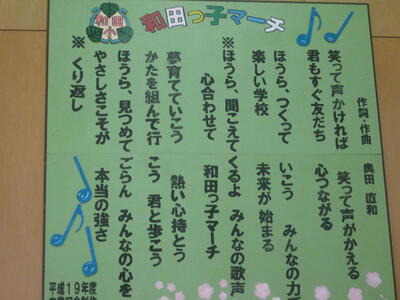 和田小
和田っ子マーチ
作詞・作曲 奥田 直和
笑って声かければ 笑って声がかえる
君もすぐ友だち 心つながる
ほうら、つくって いこう みんなの力で
楽しい学校 未来が始まる
※ほうら、聞こえて くるよ みんなの歌声
心合わせて 和田っ子マーチ
夢育てていこう 熱い心持とう
かたを組んで行 こう 君と歩こう
ほうら、見つめて ごらん みんなの心を
やさしさこそが 本当の強さ
※くり返し
平成19年度